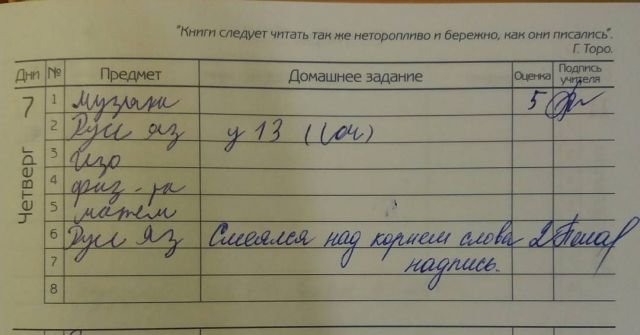 "Книги следует читать так же неторопливо и бережно, как они писались".
Г. Торо.
Дни № Предмет Домашнее задание Оценка Подпись учителя
7 Четверг
1 музыка 5
2 Русс яз у 13 (
3 Изо
4 физ-ра
5 матем
6 Русс Яз Смеялся над корнем слова 2
7 надпись.
8